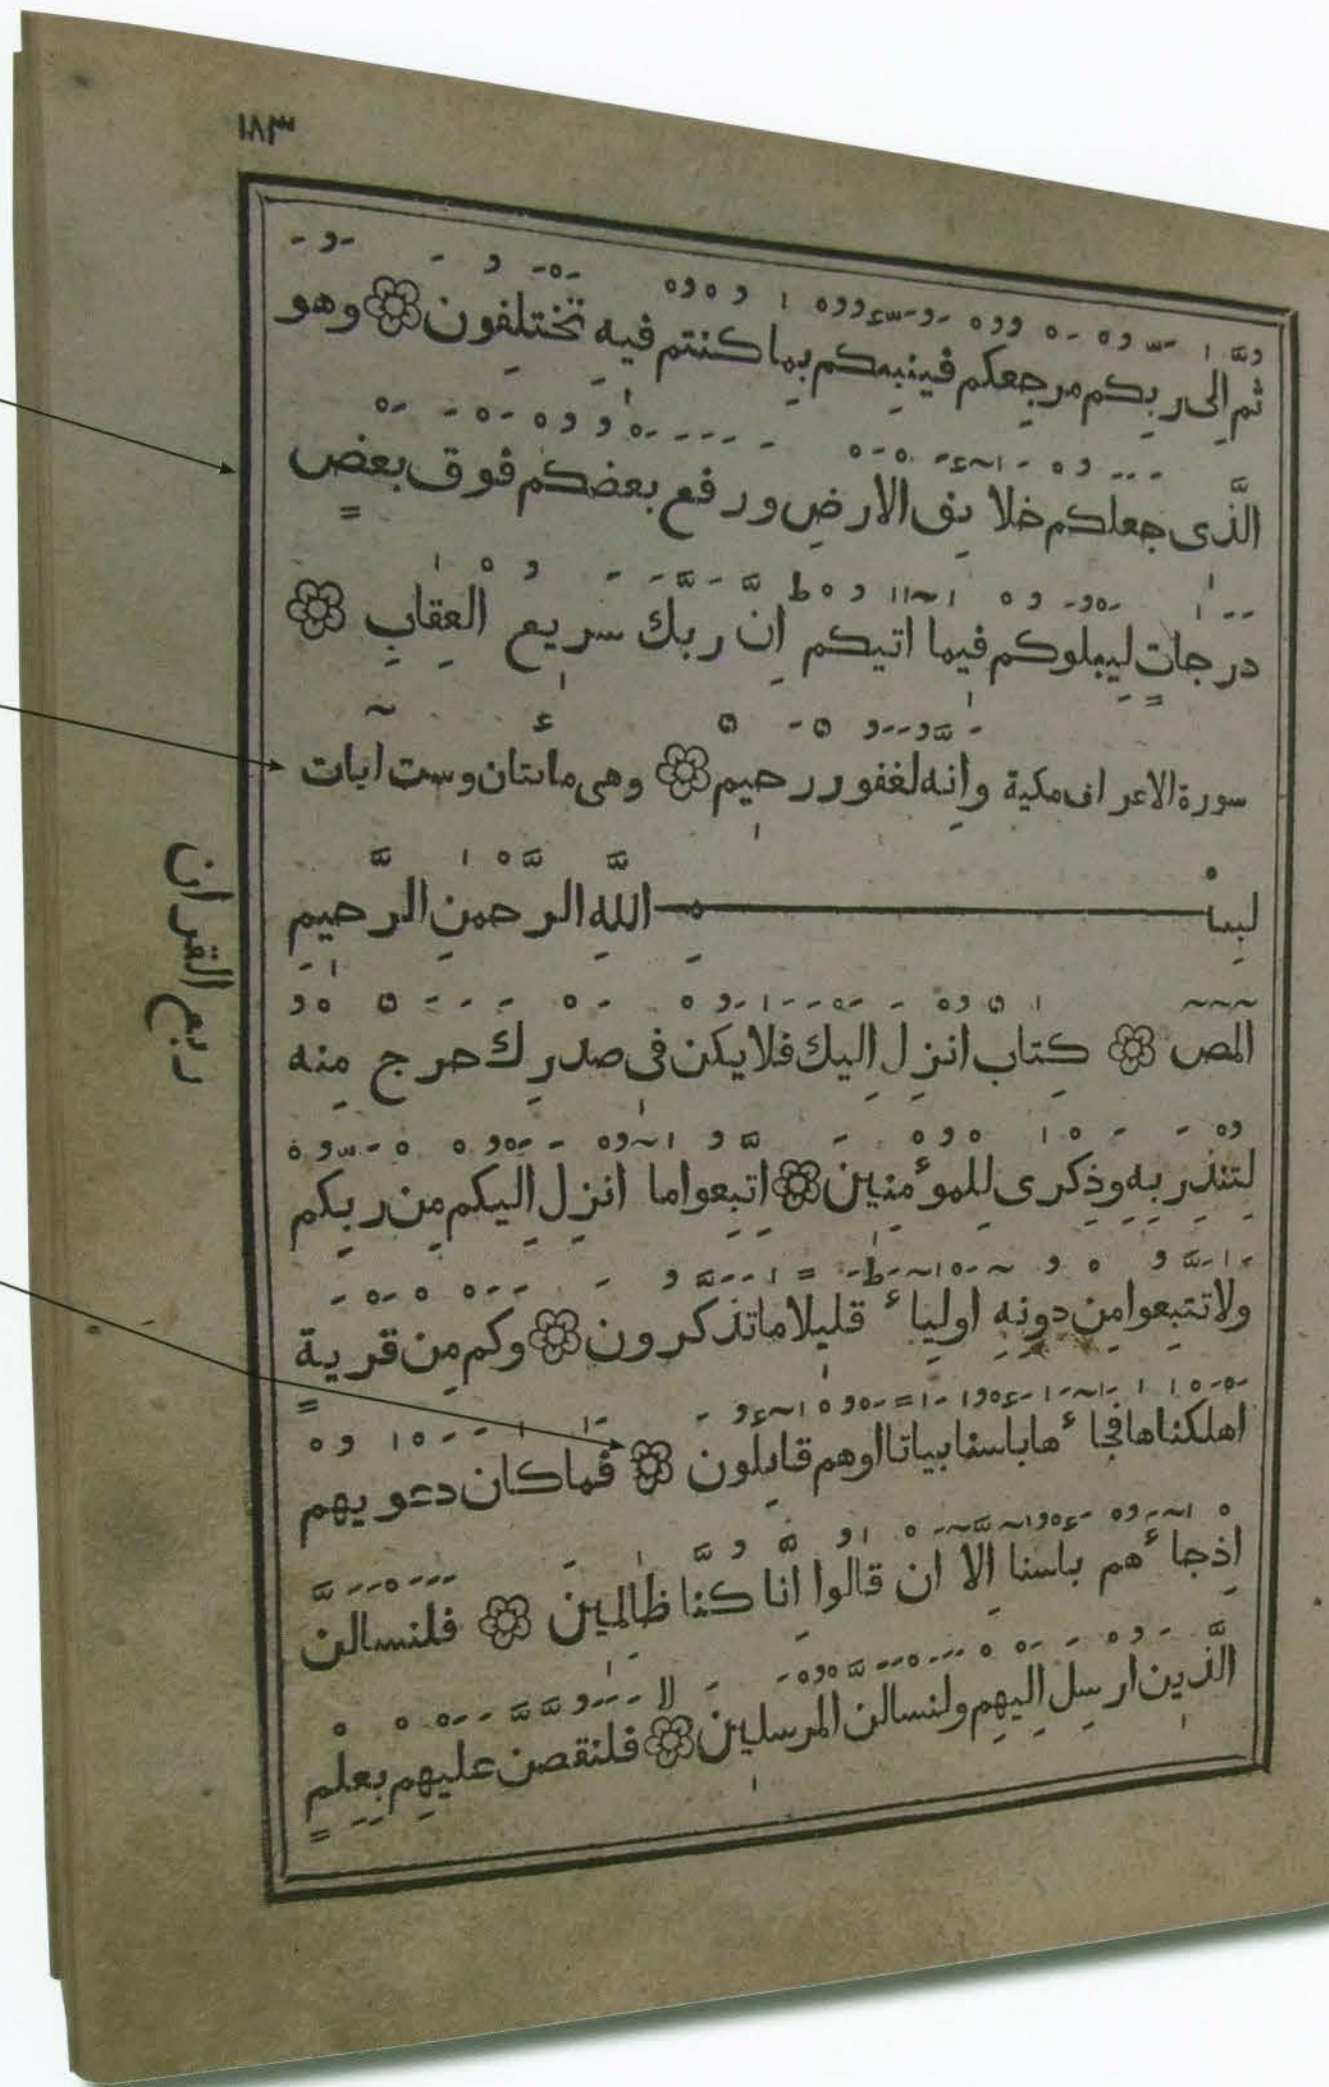 ١٨٣
ثم إلى ربكم مرجعكم فينبئكم بما كنتم فيه تختلفون ۝ وهو
الذى جعلكم خلائف الارض ورفع بعضكم فوق بعض
درجات ليبلوكم فيما اتيكم ان ربك سريع العقاب ۝
سورة الاعراف مكية وانه لغفور رحيم ۝ وهى مائتان وست آيات
بسم الله الرحمن الرحيم
المص ۝ كتاب انزل اليك فلا يكن فى صدرك حرج منه
لتنذر به وذكرى للمؤمنين ۝ اتبعوا ما انزل اليكم من ربكم
ولا تتبعوا من دونه اولياء قليلا ما تذكرون ۝ وكم من قرية
اهلكناها فجاءها باسنا بياتا اوهم قايلون ۝ فما كان دعويهم
اذ جاءهم باسنا الا ان قالوا انا كنا ظالمين ۝ فلنسالن
الذين ارسل اليهم ولنسالن المرسلين ۝ فلنقصن عليهم بعلم
ربع القرآن